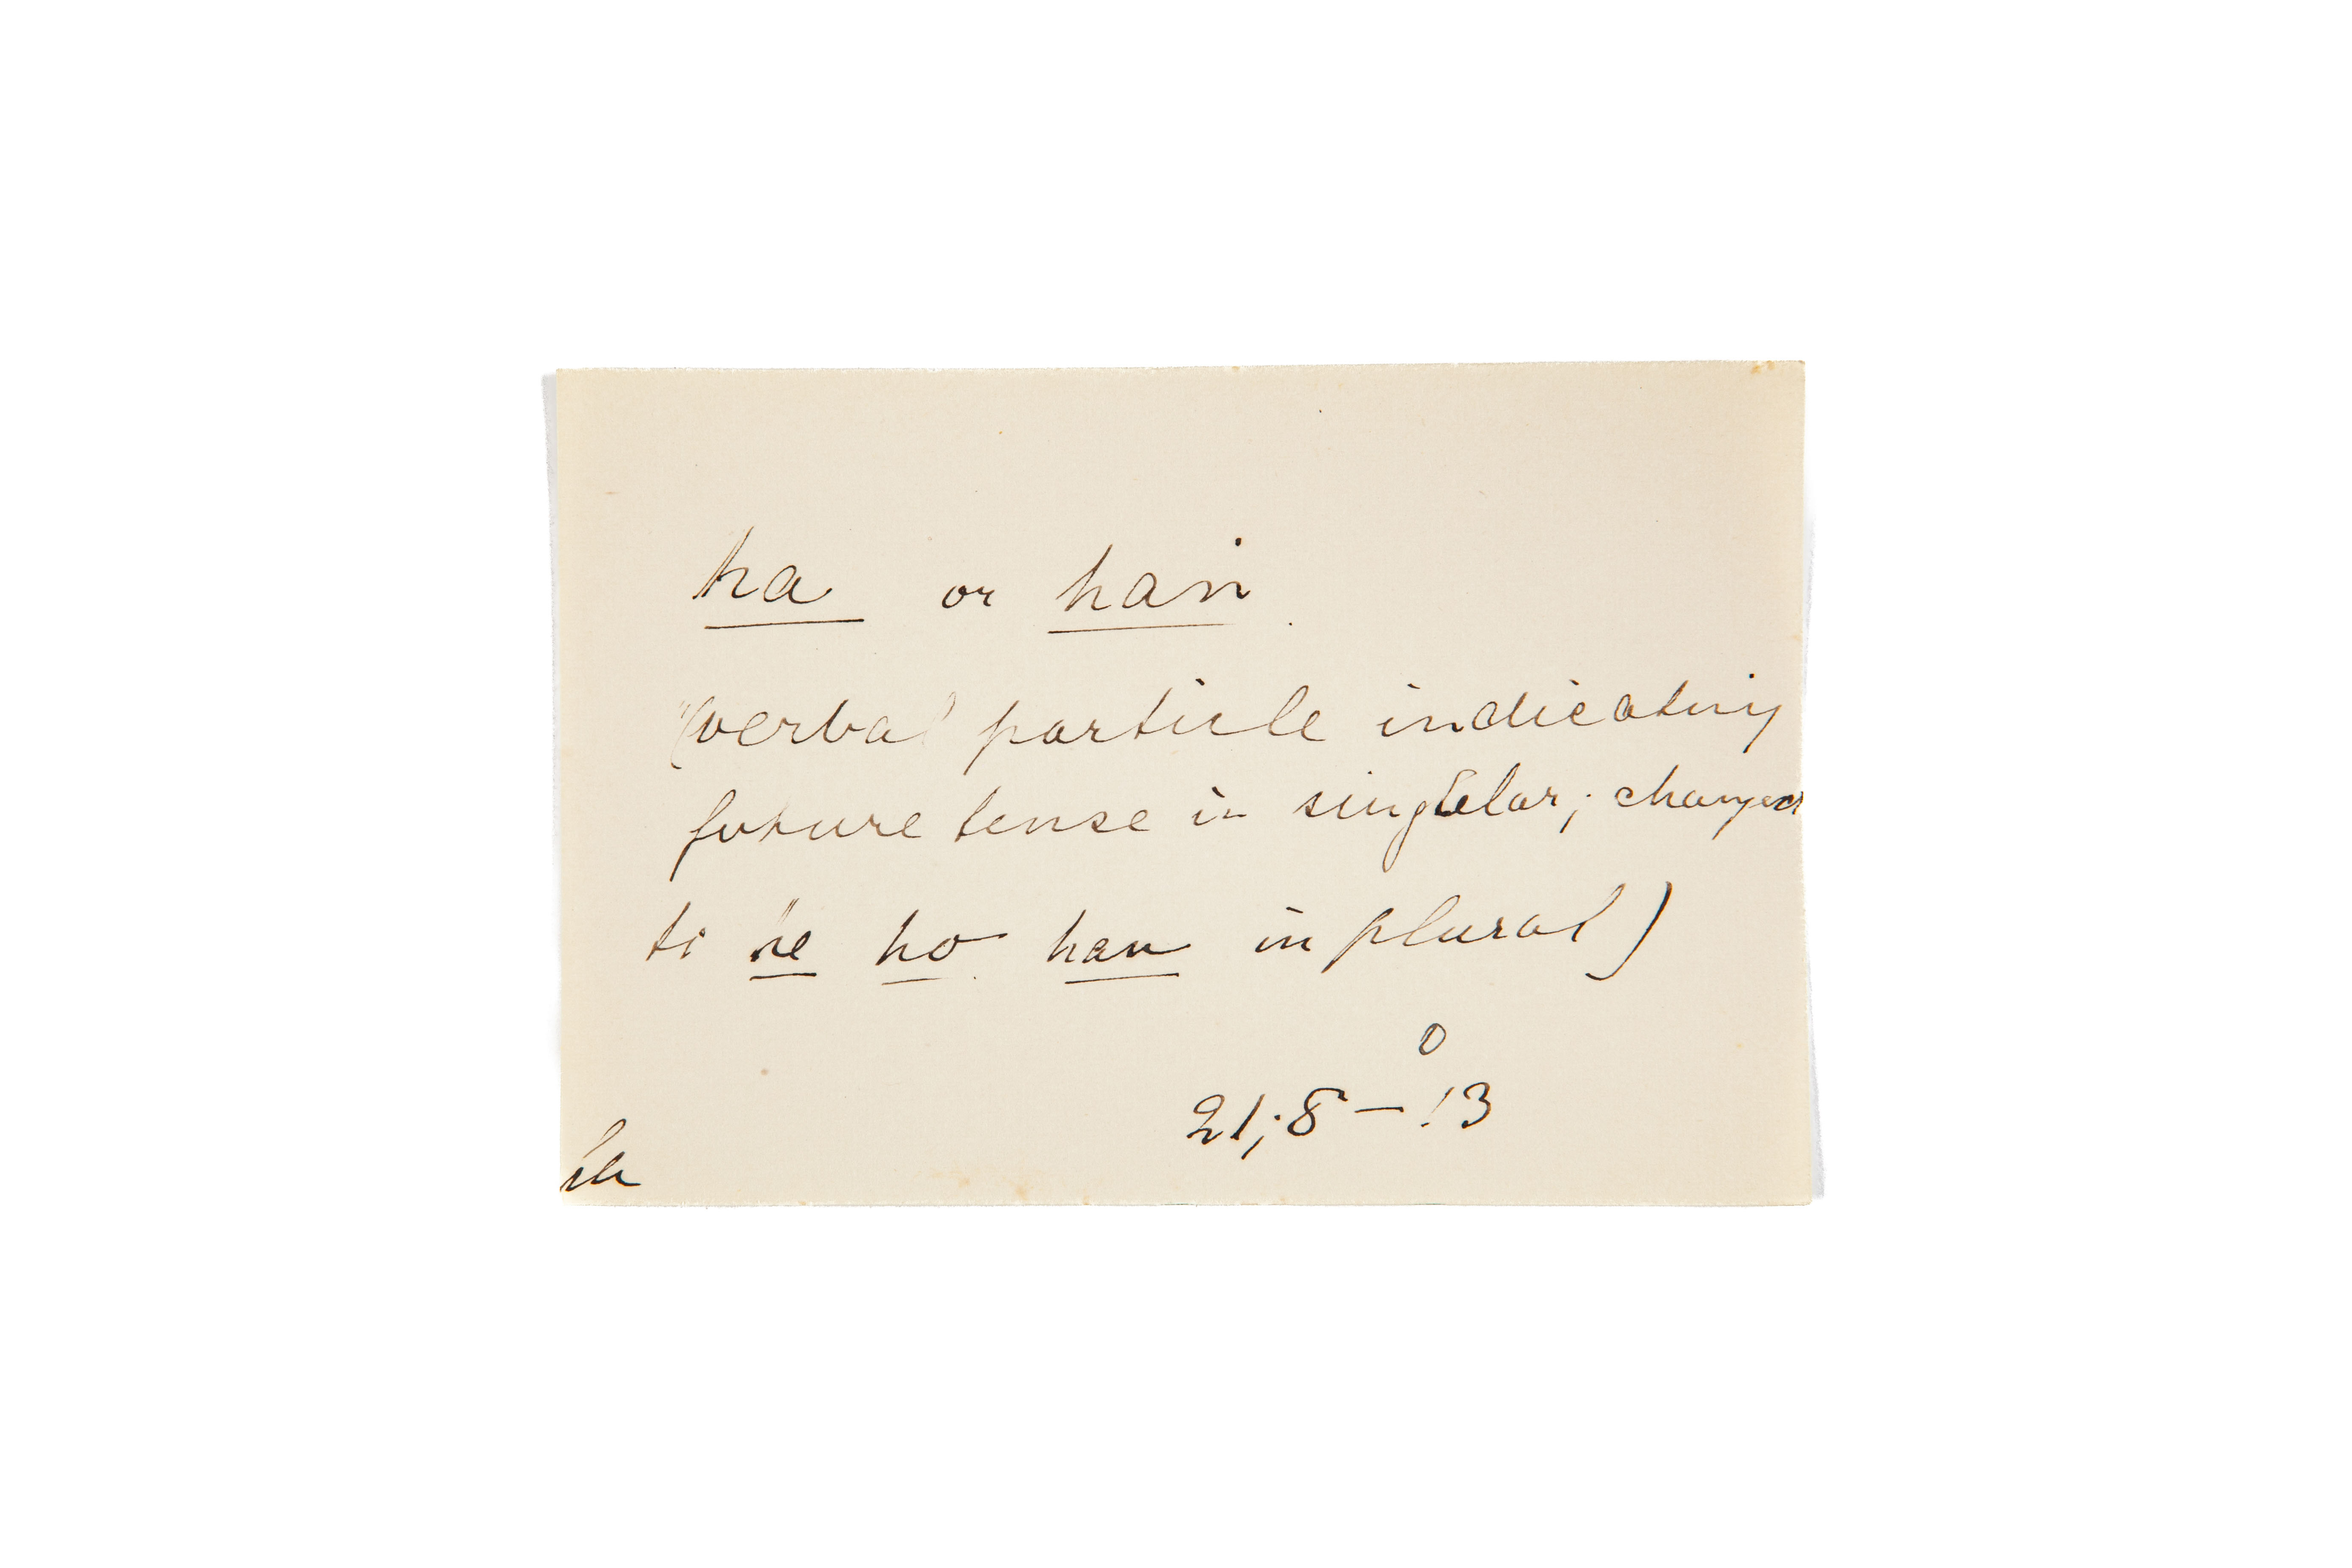 ha or han
(verbal particle indicating
future tense in singular; changes
to he ho han in plural)
0
21;8 – 13